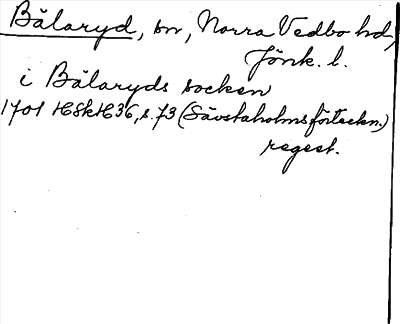 Bälaryd, sn, Norra Vedbo hd,
Jönk. l.
i Bälaryds socken
1701 HSkH36, s. 73 (Sävstaholmsförteckn.)
regest.